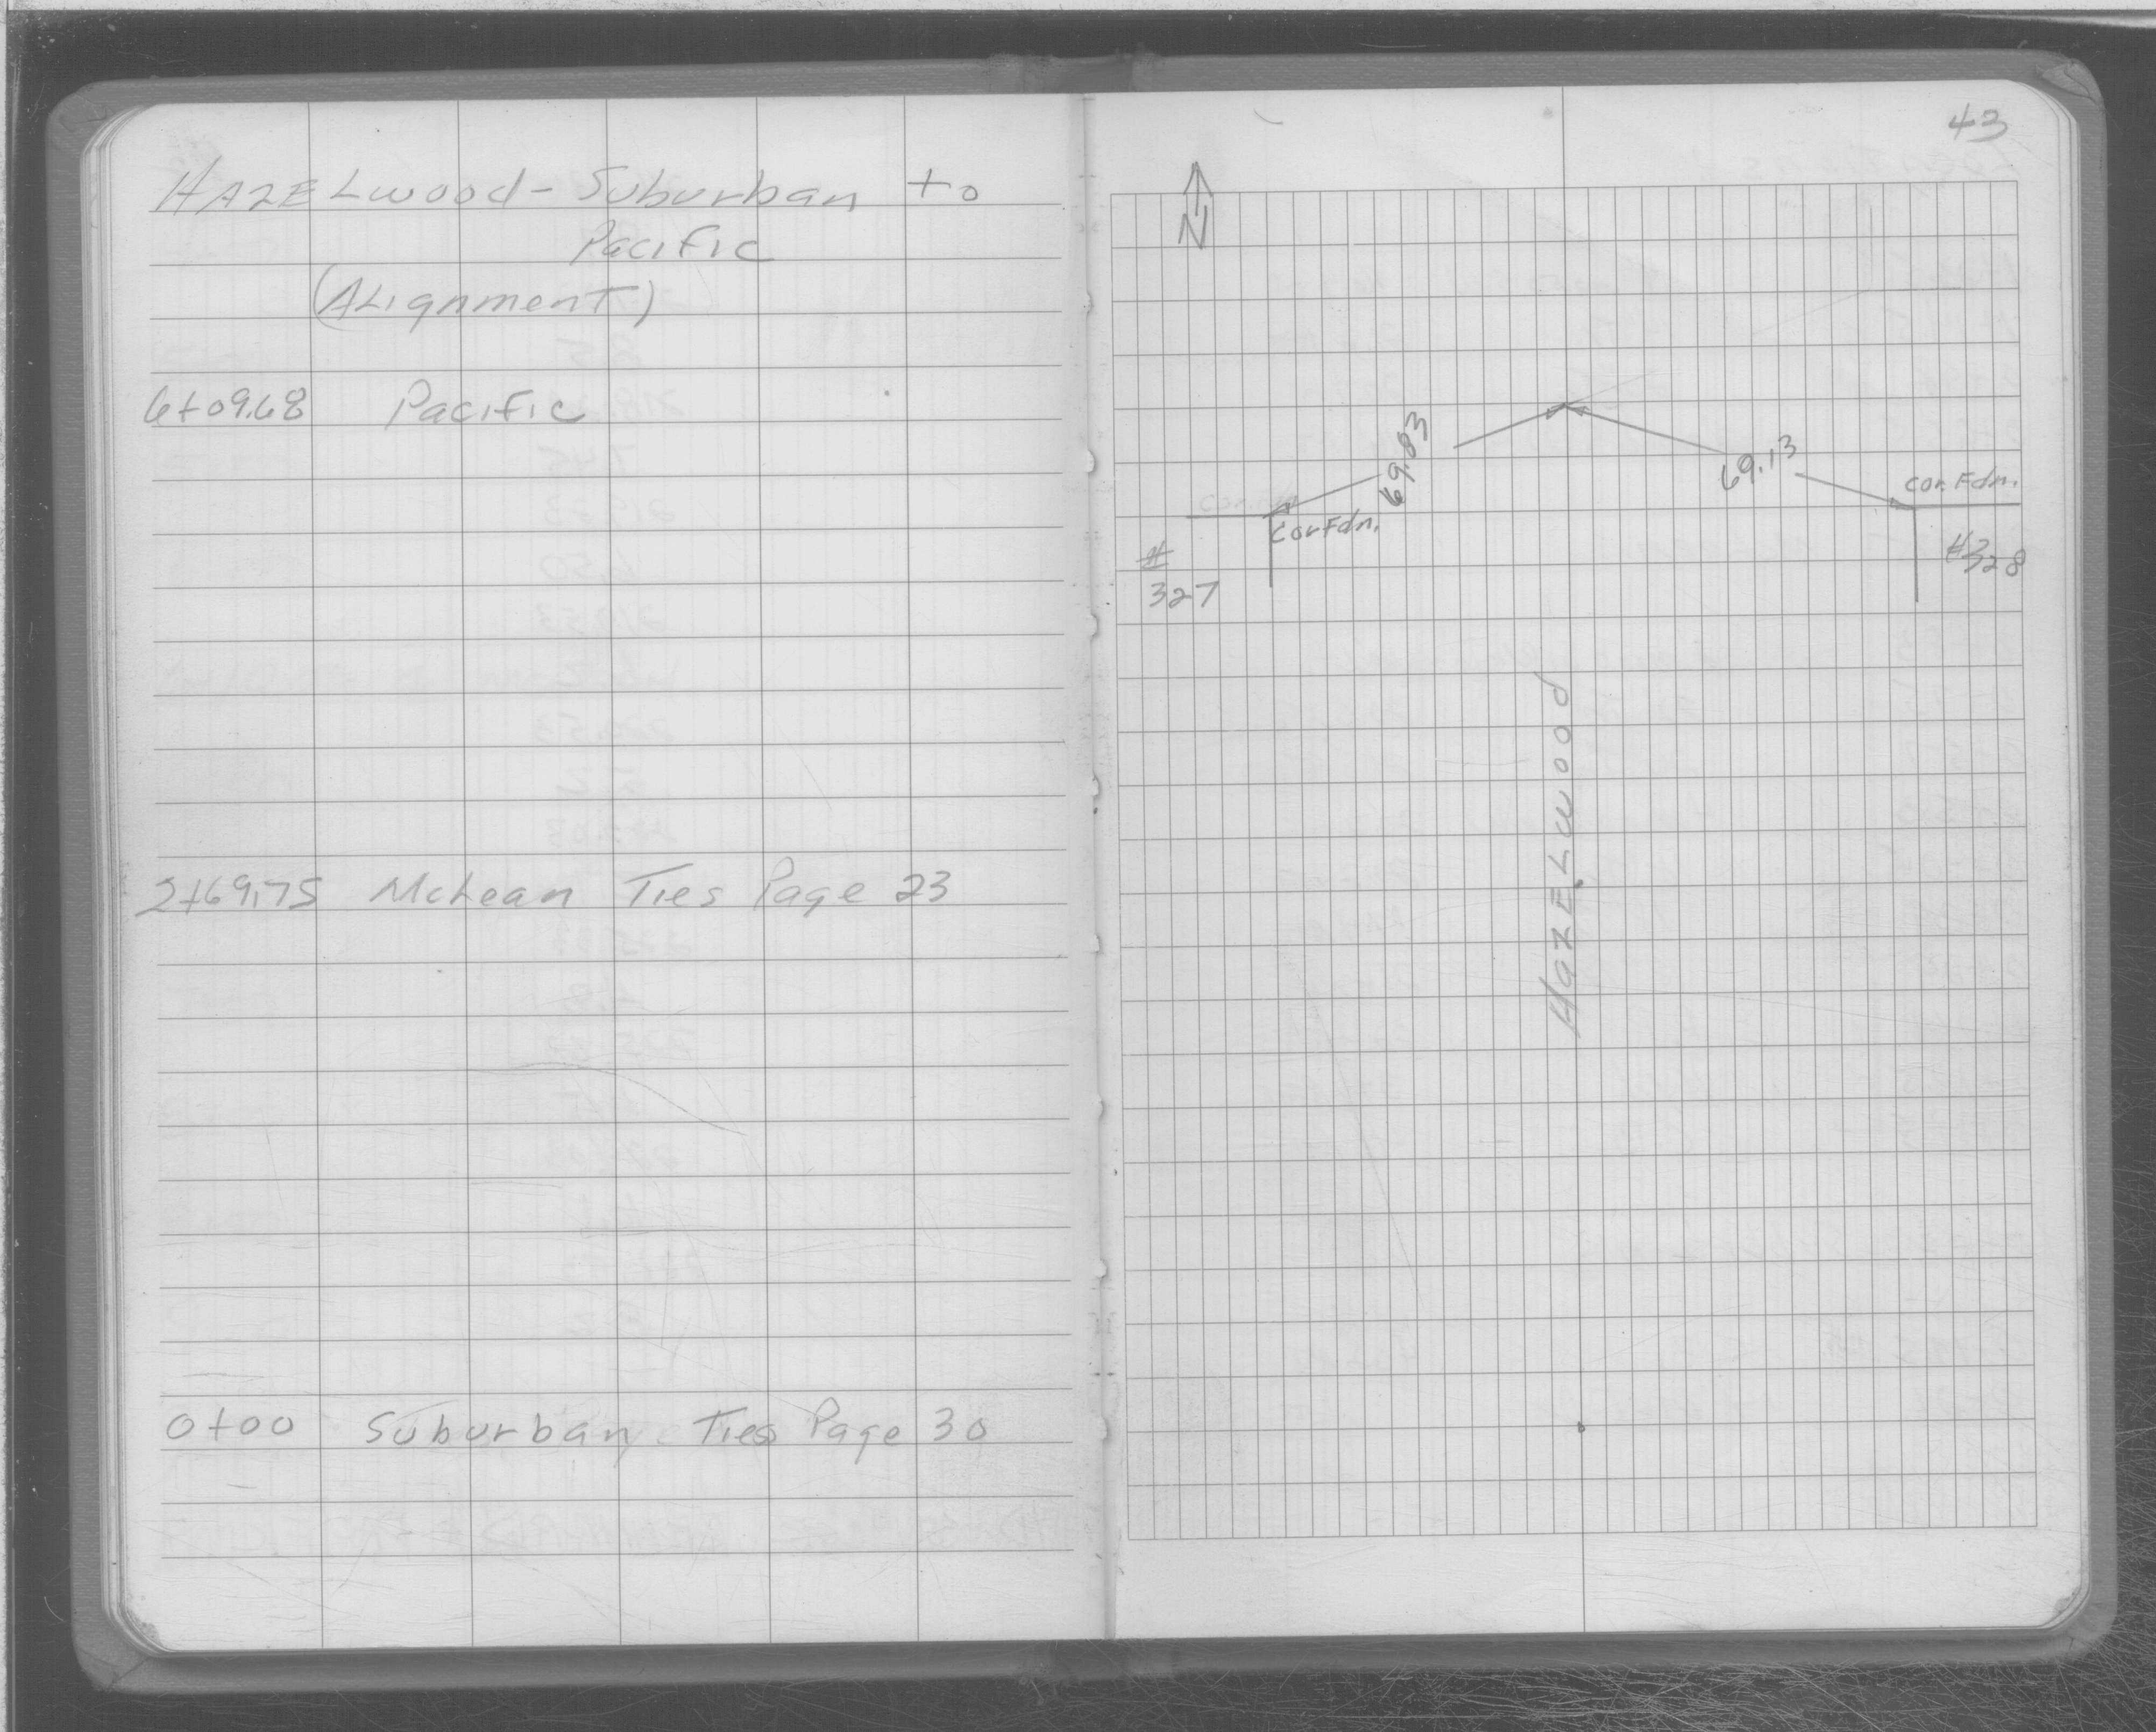 HAZELwood - Suburban to
Pacific
(ALignmenT)
6+09.68 Pacific
2+69.75 McLean Ties Page 23
0+00 Suburban Ties Page 30
43
N
69.83
69.13
Cor. Fdn.
Cor Fdn.
#
327
#328
HaZELwood